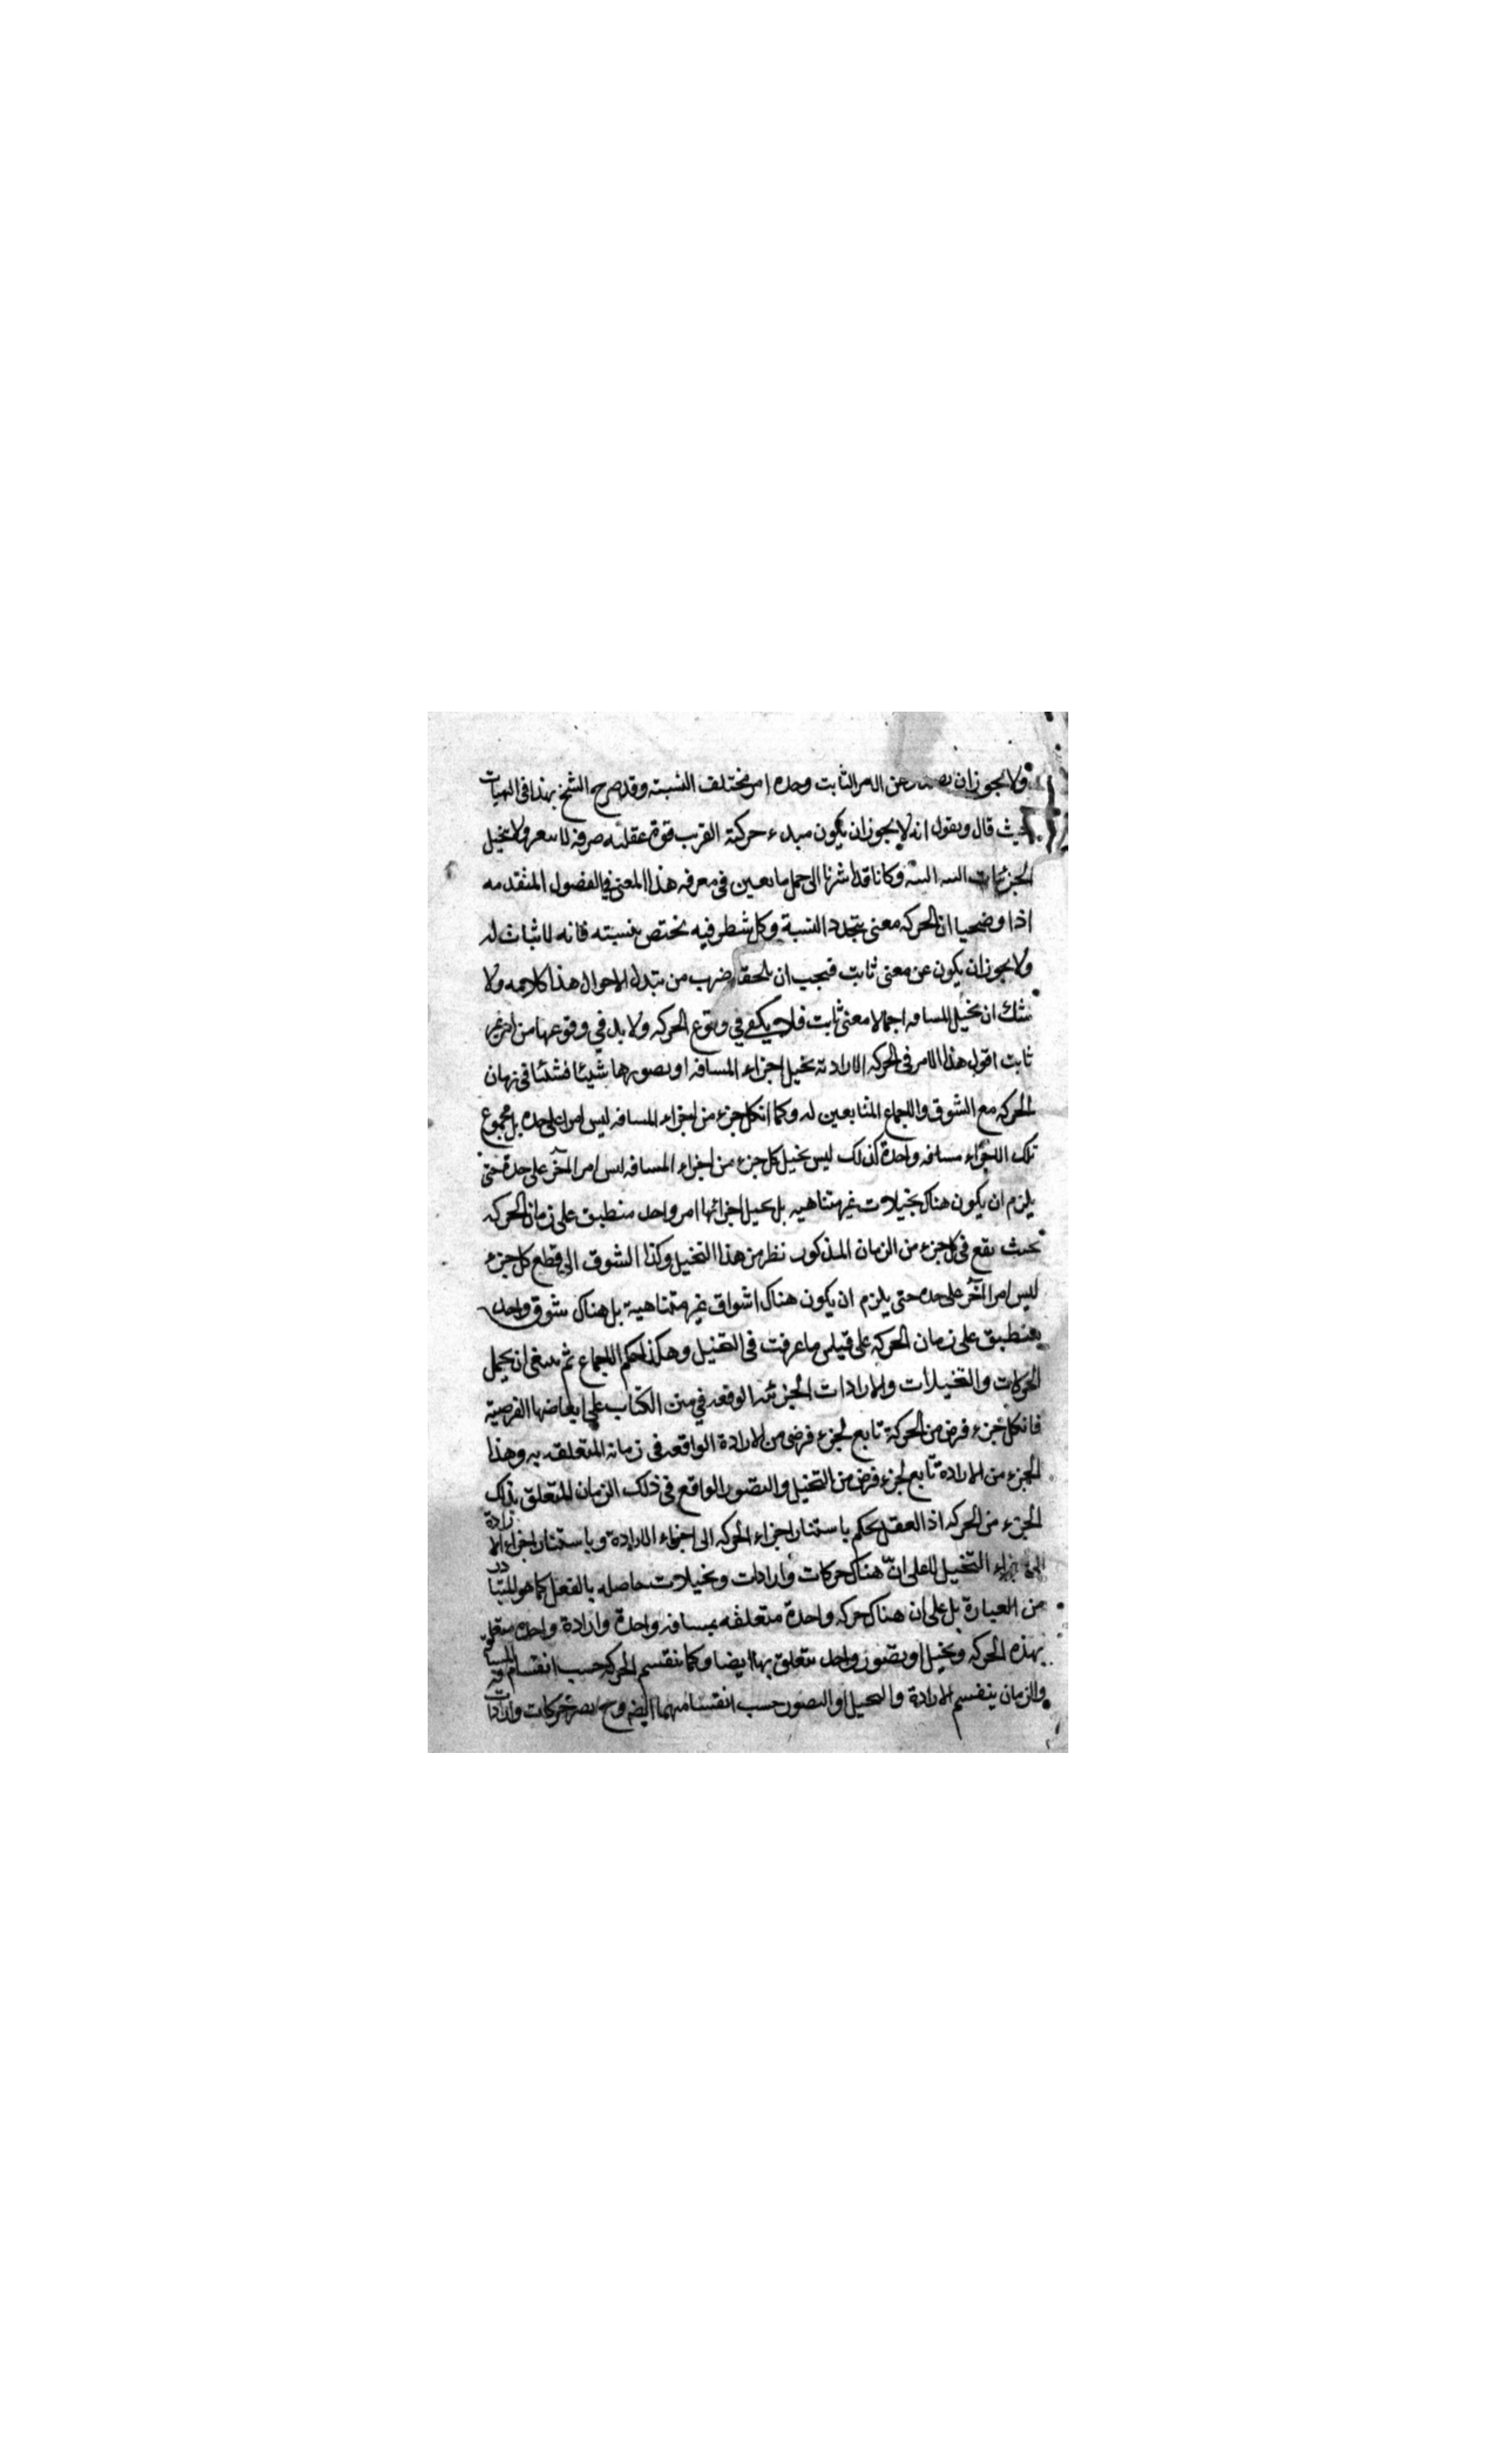 ولا يجوز ان يصدر عن الامر الثابت وحده امر مختلف النسبة وقد صرح الشيخ بهذا فى الهيات
حيث قال ونقول انه لا يجوز ان يكون مبدء حركته القريب قوة عقلية صرفه لا تتغير ولا تتخيل
الجزئيات البته البته وكانا قد اشرنا الى جمل ما تعين فى معرفه هذا المعنى فى الفصول المتقدمه
اذا وضحنا ان الحركه معنى يتجدد النسبة وكل شطر فيه مختص بنسبته فانه لا ثبات له
ولا يجوز ان يكون عن معنى ثابت فيجب ان يلحقه ضرب من تبدل الاحوال هذا كلامه ولا
شك ان تخيل المسافه اجمالا معنى ثابت فلا يكفى فى وقوع الحركه ولا بد فى وقوعها من امر غير
ثابت اقول هذا الامر فى الحركه الاراديه تخيل اجزاء المسافه او تصورها شيئا فشيئا فى زمان
الحركه مع الشوق والاجماع التابعين له وكما ان كل جزء من اجزاء المسافه ليس امرا على حده بل مجموع
تلك الاجزاء مسافه واحدة كذلك ليس تخيل كل جزء من اجزاء المسافه ليس امرا اخر على حدة حتى
يلزم ان يكون هناك تخيلات غير متناهيه بل تخيل اجزائها امر واحد منطبق على زمان الحركه
بحيث يقع فى كل جزء من الزمان المذكور نظر من هذا التخيل وكذا الشوق الى قطع كل جزء
ليس امرا اخر على حده حتى يلزم ان يكون هناك اشواق غير متناهية بل هناك شوق واحد
ينطبق على زمان الحركه على قياس ما عرفت فى التخيل وهكذا حكم الاجماع ثم ينبغى ان يحمل
الحركات والتخيلات والارادات الجزئيه الواقعه فى متن الكتاب على ابعاضها الفرضية
فان كل جزء فرض من الحركة تابع لجزء فرضى من الارادة الواقعه فى زمانه المتعلقه به وهذا
الجزء من الارادة تابع لجزء فرض من التخيل والتصور الواقع فى ذلك الزمان المتعلق بذلك
الجزء من الحركه اذ العقل يحكم باستناد اجزاء الحركه الى اجزاء الارادة وباستناد اجزاء الارادة
الى اجزاء التخيل لا على ان هناك حركات وارادات وتخيلات حاصله بالفعل كما هو المتبادر
من العبارة بل على ان هناك حركه واحدة متعلقه بمسافه واحدة وارادة واحده متعلقه
بهذه الحركه وتخيل او تصور واحد متعلق بها ايضا وكما ينقسم الحركه حسب انقسام المسافه
والزمان ينقسم الارادة والتخيل او التصور حسب انقسامهما ايضا وح تصير حركات وارادات